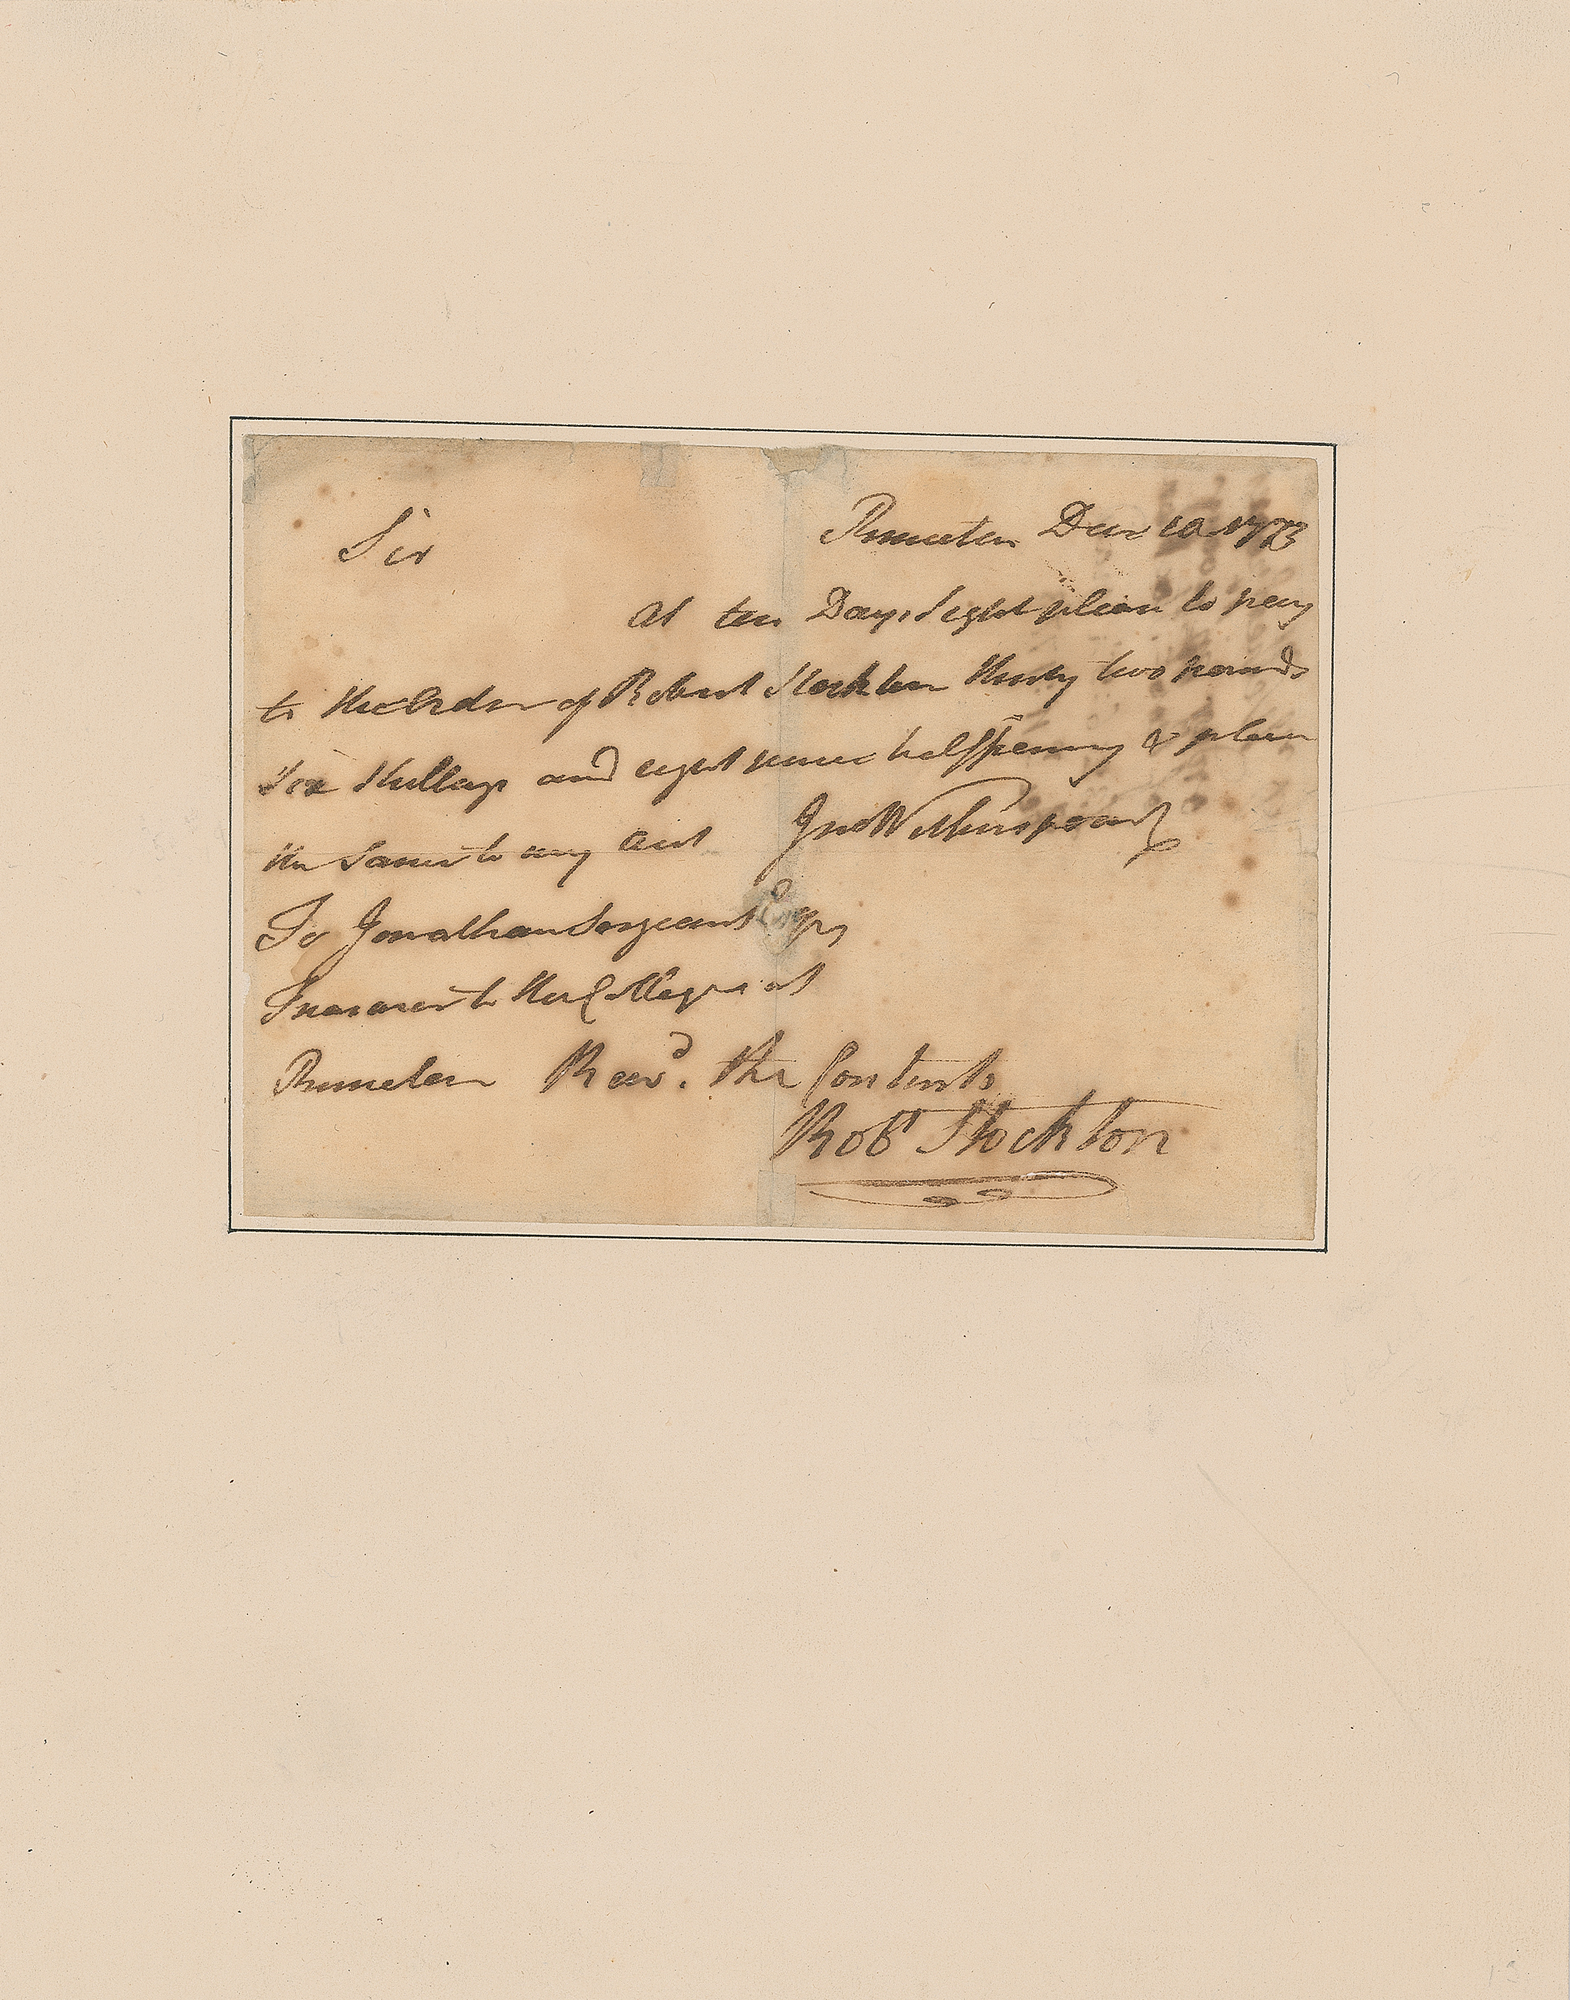 Sir Princeton Decr 10 1773
At ten Days Sight please to pay
to the Order of Robert Stockton thirty two pounds
Six Shillings and eight pence halfpenny & place
the same to my Acct Jno Witherspoon
To Jonathan Sergeant Esqr,
Treasurer to the College at
Princeton Recd. the Contents
Robt Stockton